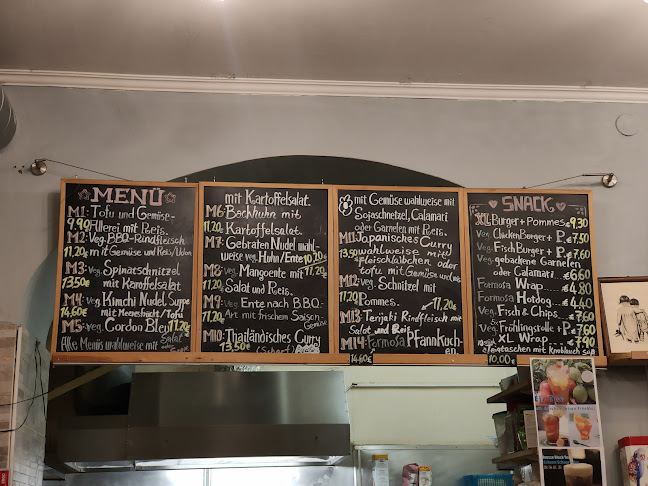 MENÜ
M1: Tofu und Gemüse-
9,90 Allerei mit Reis.
M2: Veg. B.B.Q-Rindfleisch
11,20 mit Gemüse und Reis/Udon
M3: Veg. Spinatschnitzel
13,50€ mit Karoffelsalat
M4: Veg Kimchi Nudel Suppe
14,60€ mit Meeresfrücht/Tofu
M5: Veg. Gordon Bleu 11,20
Alle Menüs wahlweise mit Salat oder Suppe
mit Kartoffelsalat.
M6: Backhuhn mit
11,20 Kartoffelsalat.
M7: Gebraten Nudel wahl-
weise veg. Huhn/Ente 10,20€
M8: Veg. Mangoente mit 11,20
11,20 Salat und Reis.
M9: Veg. Ente nach B.B.Q.-
11,20 Art mit frischem Saison-
Gemüse
M10: Thailändisches Curry
13,50€ (Scharf)
mit Gemüse wahlweise mit
Sojaschnetzel, Calamari
oder Garnelen mit Reis.
M11: Japanisches Curry
13,50 wahlweise mit
fleischlaibchen oder
tofu mit Gemüse und
M12: Veg. Schnitzel mit
11,20 Pommes. 11,20€
M13: Terijaki Rindfleisch mit
Salat und Reis
M14: Formosa Pfannkuch-
14,60€ en
SNACK
XXL Burger + Pommes € 9,30
Veg. Chicken Burger + P. € 7,50
Veg. Fisch Burger + P. € 7,60
Veg. gebackene Garnelen
oder Calamari € 6,60
Formosa Wrap € 4,80
Formosa Hotdog € 4,40
Veg. Fish & Chips € 7,60
Veg. Frühlingsrolle + P. € 7,60
XL Wrap € 7,90
taschen mit Knoblauch soße
10,00€